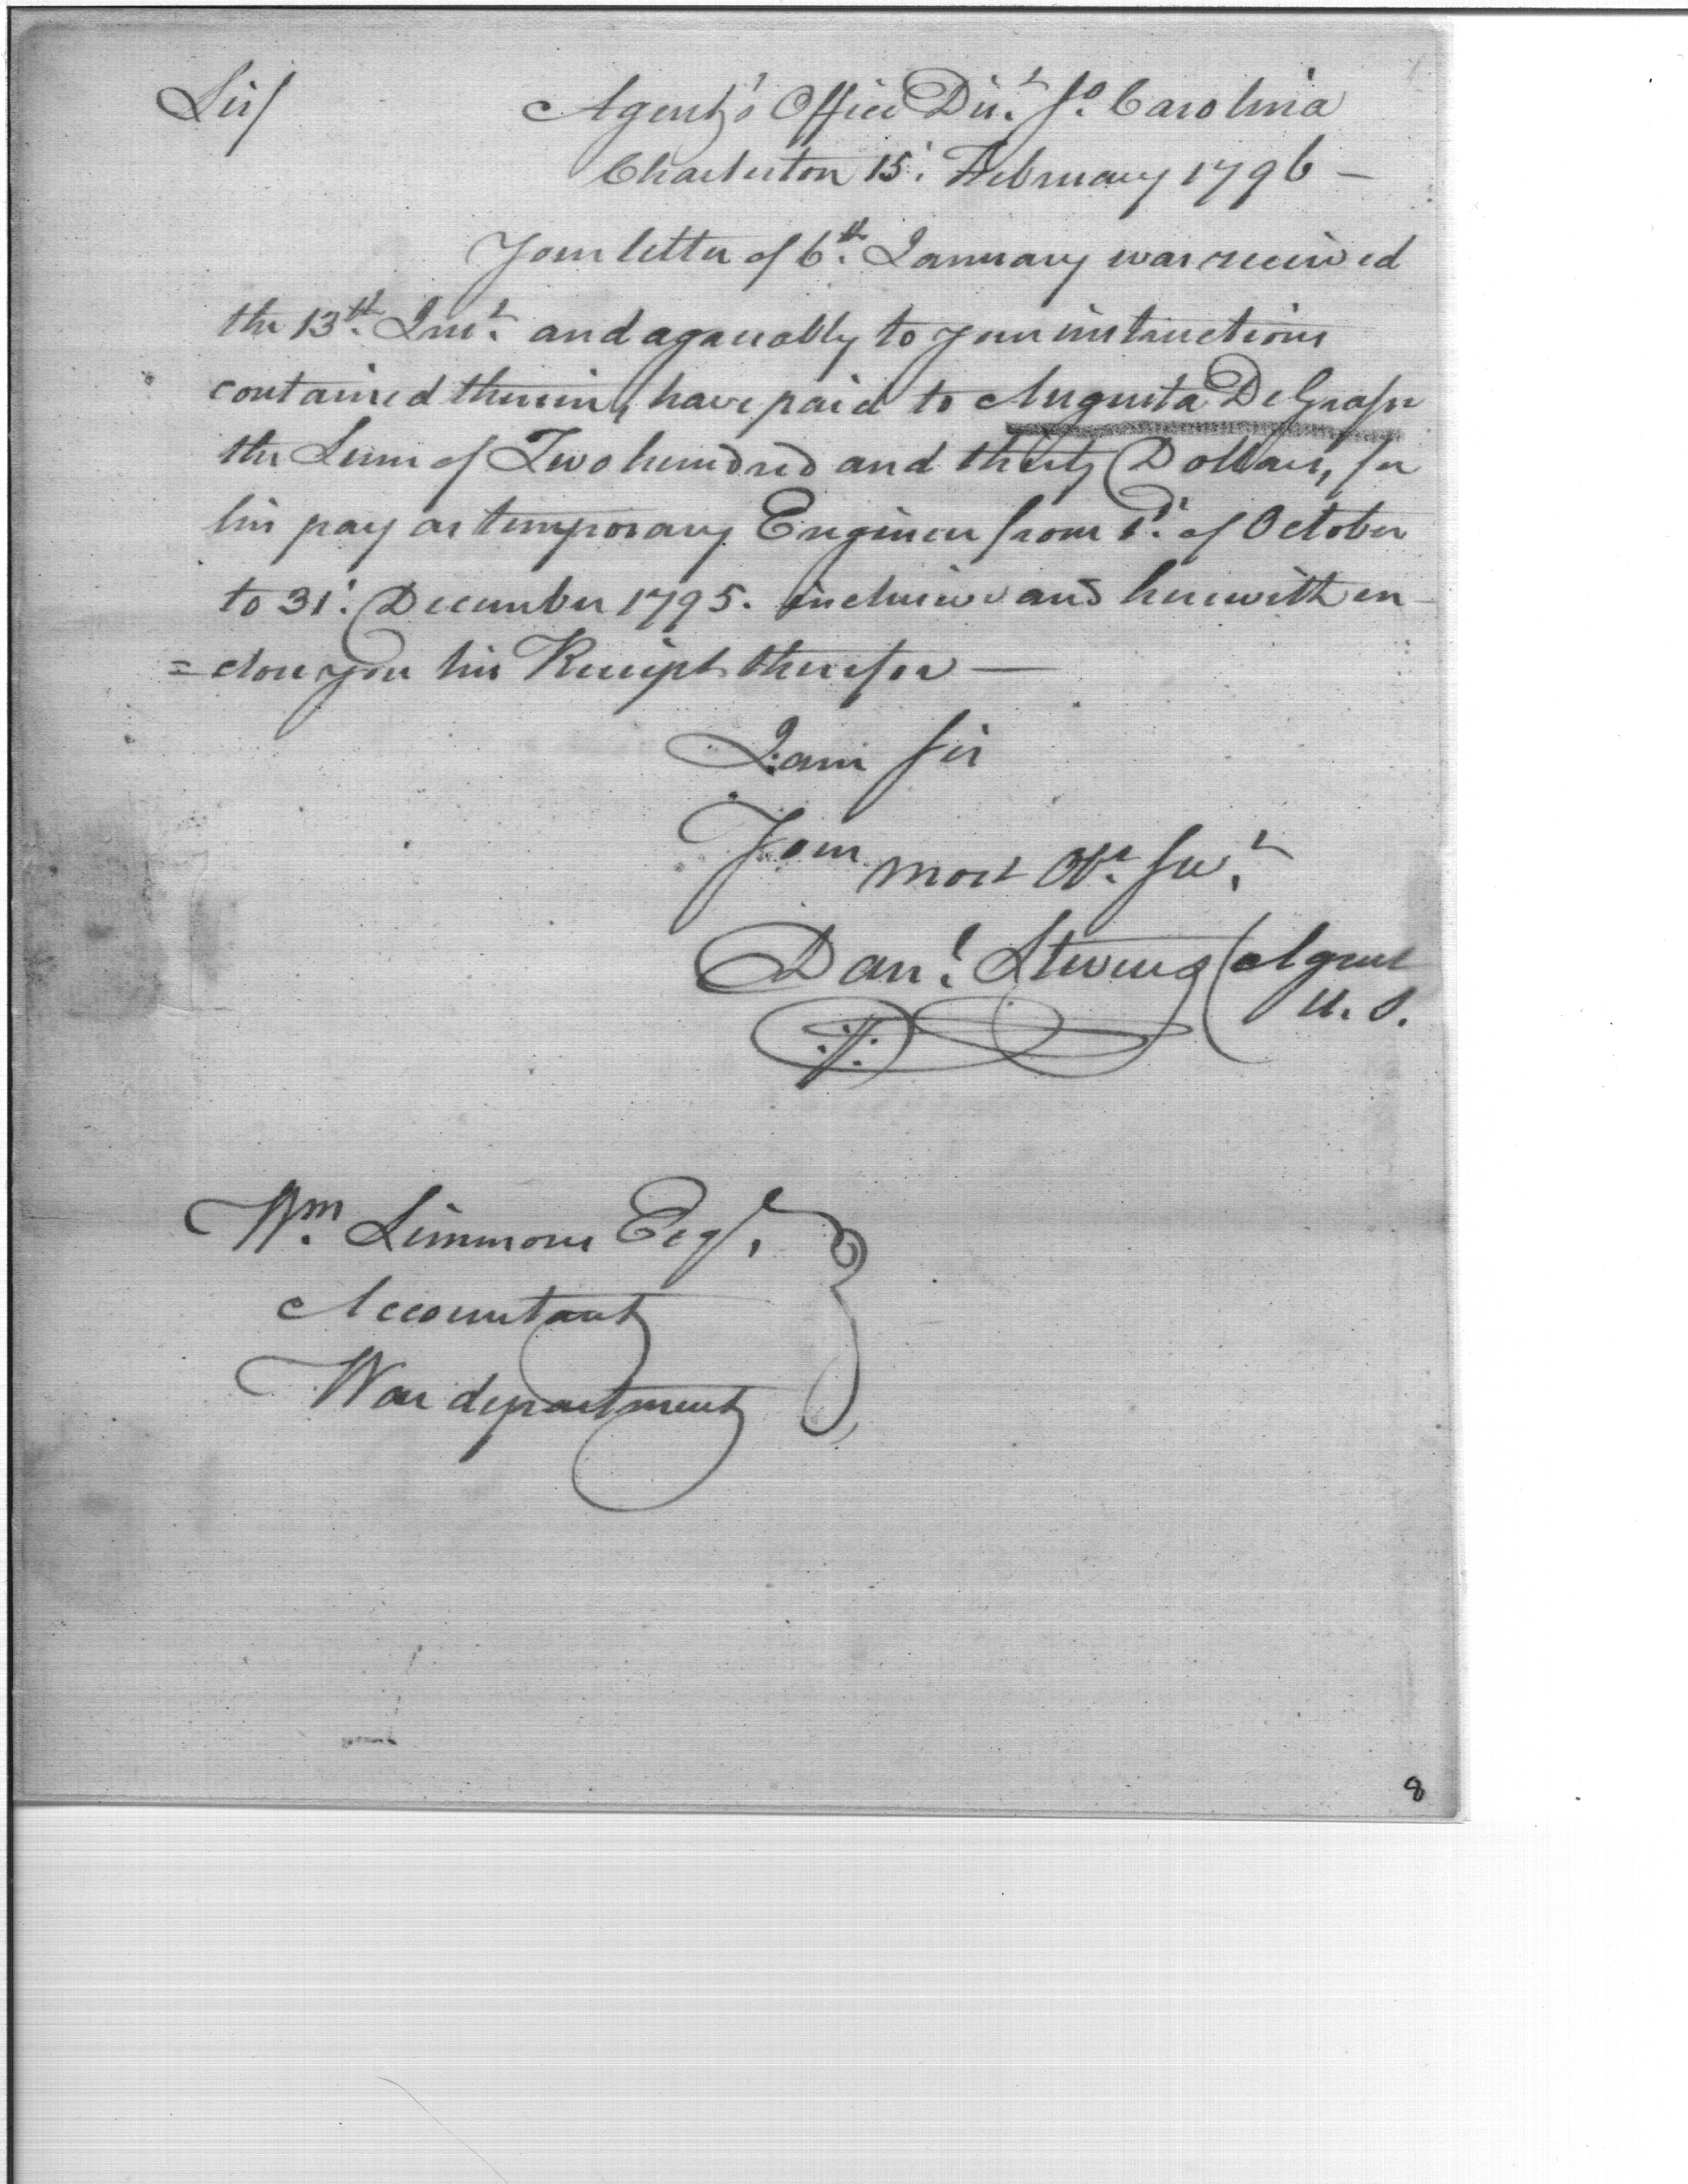 Sir/ Agent's Office Dist. So. Carolina
Charleston 15' February 1796 —
Your letter of 6th. January was received
the 13th. Inst. and agreeably to your instructions
contained therein, have paid to Augusta De Grasse
the Sum of Two hundred and thirty Dollars, for
his pay as temporary Engineer from 1st. of October
to 31'. December 1795. inclusive and herewith en-
=close you his Receipt therefor —
I am Sir
Your most Obt. Sert.
Danl. Stevens (Agent
U. S.
Wm. Simmons Esqr.
Accountant
War department
8